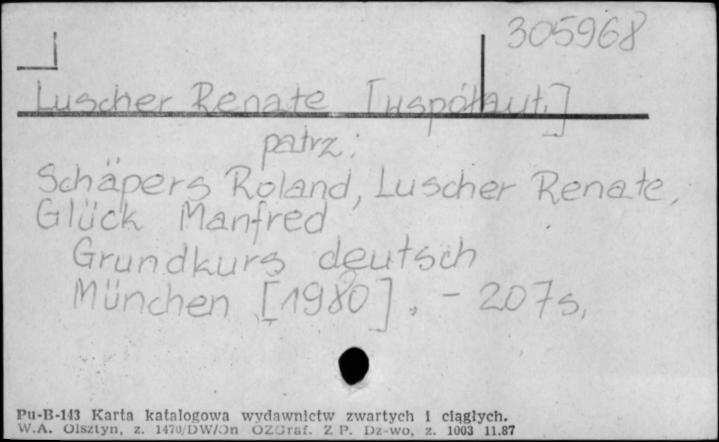 305968
Luscher Renate [współaut.]
patrz:
Schäpers Roland, Luscher Renate,
Glück Manfred
Grundkurs deutsch
München [1980]. - 207s.
Pu-B-143 Karta katalogowa wydawnictw zwartych i ciągłych.
W.A. Olsztyn, z. 1470/DW/Dn OZGraf. Z P. Dz-wo, z. 1003 11.87